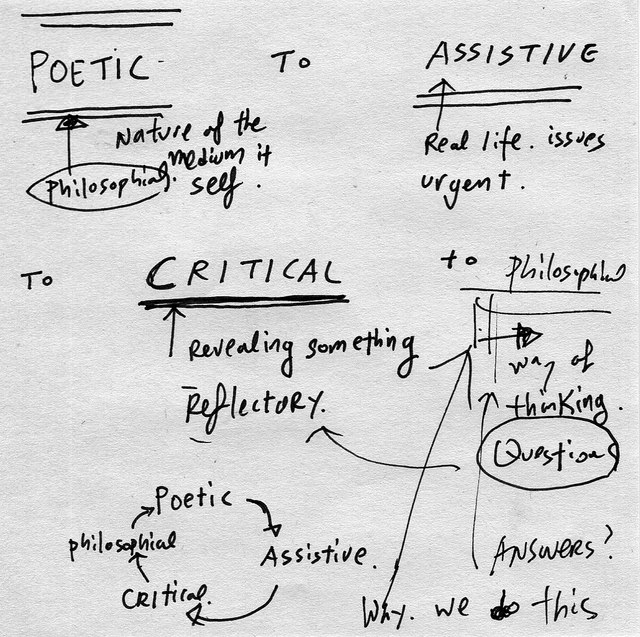 POETIC TO ASSISTIVE
Nature of the
medium it
self.
Philosophial.
Real life. issues
urgent.
TO CRITICAL to Philosophial
Revealing something
Reflectory.
way of
thinking.
Questions
Poetic
Assistive.
Critical.
philosophical
ANSWERS?
Why. we do this